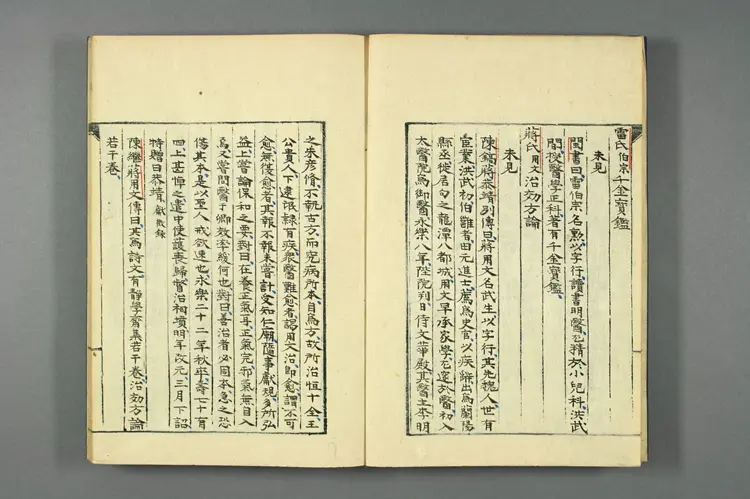 雷氏伯宗千金寶鑑
未見
閩書曰雷伯宗名勲以字行讀書明醫尤精於小兒科洪武
間授醫學正科著有千金寶鑑
蔣氏用文治効方論
未見
陳鎬蔣恭靖列傳曰蔣用文名武生以字行其先槐人世有
宦業洪武初伯雝者田元進士薦為史官以疾辭出為蘭陽
縣丞徙居句之龍潭八都城用文早承家學尤邃於醫初入
太醫院為御醫永樂八年陞院判日侍文華殿其醫主李明
之朱彦脩不執古方而究病所本自為方故所治恒十全王
公貴人下逮氓隸有疾衆醫難愈者謁用文治即愈謂不可
愈無復愈者其報不報未嘗計受知仁廟隨事獻規多所弘
益上嘗論保和之要對曰在養正氣耳正氣完邪氣無自入
焉又嘗問醫于卿效率緩何也對曰善治者必固本急之恐
傷其本是以至人戒欲速也永樂二十二年秋卒壽七十有
四上甚悼之遣中使護喪歸督治祠墳明年改元三月下詔
特贈曰恭靖獻徴録
陳繼蔣用文傳曰其為詩文有靜學齋集若干卷治効方論
若干卷